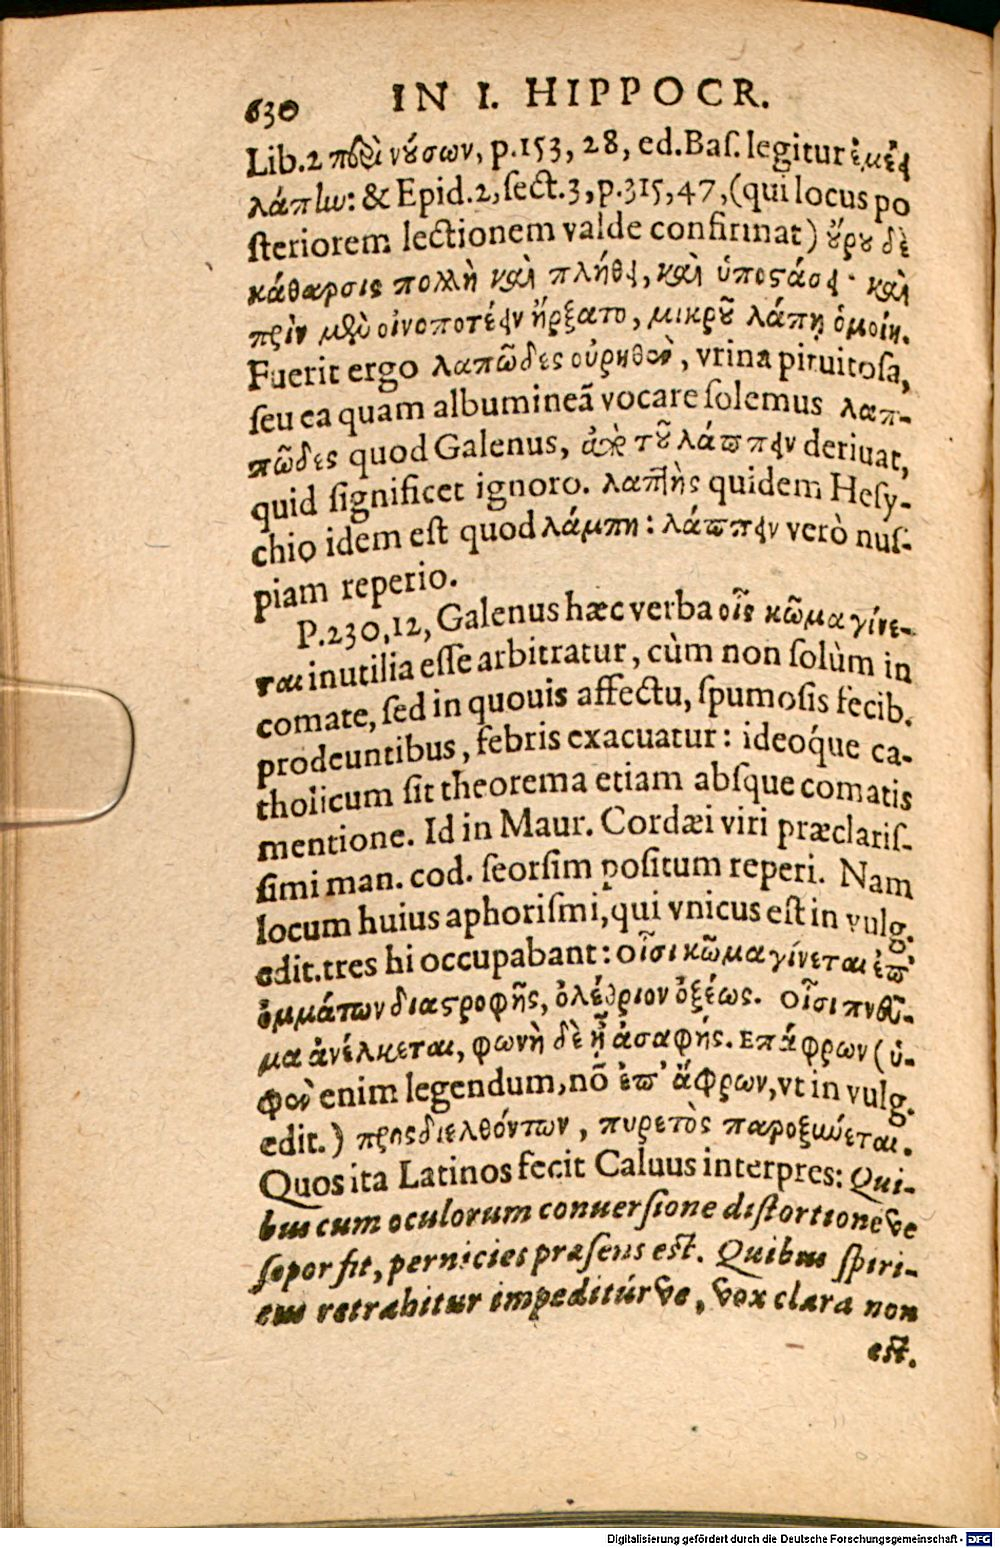 630 IN I. HIPPOCR.
Lib.2 περὶ νούσων, p.153, 28, ed.Baſ. legitur ἐμέει
λάπην: & Epid.2, ſect.3, p.315, 47, (qui locus po
ſteriorem lectionem valde confirmat) οὔρου δὲ
κάθαρσις πολλὴ καὶ πλήθει, καὶ ὑποστάσει· καὶ
πρὶν μὲν οἰνοποτέειν ἤρξατο, μικροῦ λάπῃ ὁμοίη.
Fuerit ergo λαπῶδες οὐρηθὲν, vrina pituitoſa,
ſeu ea quam albumineã vocare ſolemus λαπ-
πῶδες quod Galenus, ἀπὸ τοῦ λάππειν deriuat,
quid ſignificet ignoro. quidem Heſy-
chio idem eſt quod λάμπη: λάππειν verò nuſ-
piam reperio.
P.230,12, Galenus hæc verba οἷς κῶμα γίνε-
ται inutilia eſſe arbitratur, cùm non ſolùm in
comate, ſed in quouis affectu, ſpumoſis fecib.
prodeuntibus, febris exacuatur: ideóque ca-
tholicum ſit theorema etiam abſque comatis
mentione. Id in Maur. Cordæi viri præclariſ-
ſimi man. cod. ſeorſim poſitum reperi. Nam
locum huius aphoriſmi, qui vnicus eſt in vulg.
edit. tres hi occupabant: οἷσι κῶμα γίνεται ἐπ'
ὀμμάτων διαστροφῆς, ὀλέθριον ὀξέως. οἷσι πνεῦ-
μα ἀνέλκεται, φωνὴ δὲ ἦ ἀσαφής. Επάφρων (ὑ-
φὲν enim legendum, nõ ἐπ' ἄφρων, vt in vulg.
edit.) προςδιελθόντων, πυρετὸς παροξύνεται.
Quos ita Latinos fecit Caluus interpres: Qui-
bus cum oculorum conuerſione diſtortioneve
ſopor fit, pernicies præſens eſt. Quibus ſpiri-
tus retrahitur impeditúrve, vox clara non
eſt.
Digitalisierung gefördert durch die Deutsche Forschungsgemeinschaft - DFG